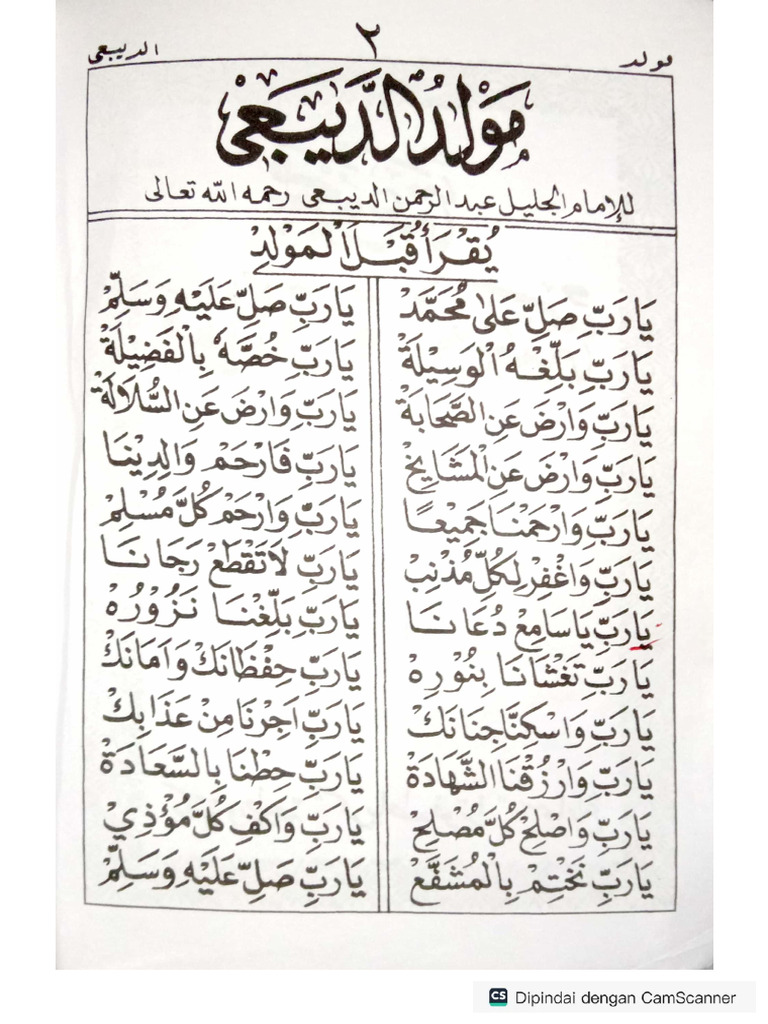 مولد ٢ الديبعي
مَوْلِدُ الدَّيْبَعِي
للإمام الجليل عبد الرحمن الديبعي رحمه الله تعالى
يُقْرَأُ قَبْلَ الْمَوْلِدْ
يَارَبِّ صَلِّ عَلَى مُحَمَّدْ يَارَبِّ صَلِّ عَلَيْهِ وَسَلِّمْ
يَارَبِّ بَلِّغْهُ الْوَسِيْلَةْ يَارَبِّ خُصَّهُ بِالْفَضِيْلَةْ
يَارَبِّ وَارْضَ عَنِ الصَّحَابَةْ يَارَبِّ وَارْضَ عَنِ السُّلَالَةْ
يَارَبِّ وَارْضَ عَنِ الْمَشَايِخْ يَارَبِّ فَارْحَمْ وَالِدِيْنَا
يَارَبِّ وَارْحَمْنَا جَمِيْعًا يَارَبِّ وَارْحَمْ كُلَّ مُسْلِمْ
يَارَبِّ وَاغْفِرْ لِكُلِّ مُذْنِبْ يَارَبِّ لَاتَقْطَعْ رَجَانَا
يَارَبِّ يَاسَامِعْ دُعَانَا يَارَبِّ بَلِّغْنَا نَزُوْرُهْ
يَارَبِّ تَغْشَانَا بِنُوْرِهْ يَارَبِّ حِفْظَانَكْ وَاَمَانَكْ
يَارَبِّ وَاسْكِنَّا جِنَانَكْ يَارَبِّ اَجِرْنَا مِنْ عَذَابِكْ
يَارَبِّ وَارْزُقْنَا الشَّهَادَةْ يَارَبِّ حِطْنَا بِالسَّعَادَةْ
يَارَبِّ وَاصْلِحْ كُلَّ مُصْلِحْ يَارَبِّ وَاكْفِ كُلَّ مُؤْذِيْ
يَارَبِّ نَخْتِمْ بِالْمُشَفَّعْ يَارَبِّ صَلِّ عَلَيْهِ وَسَلِّمْ
CS Dipindai dengan CamScanner